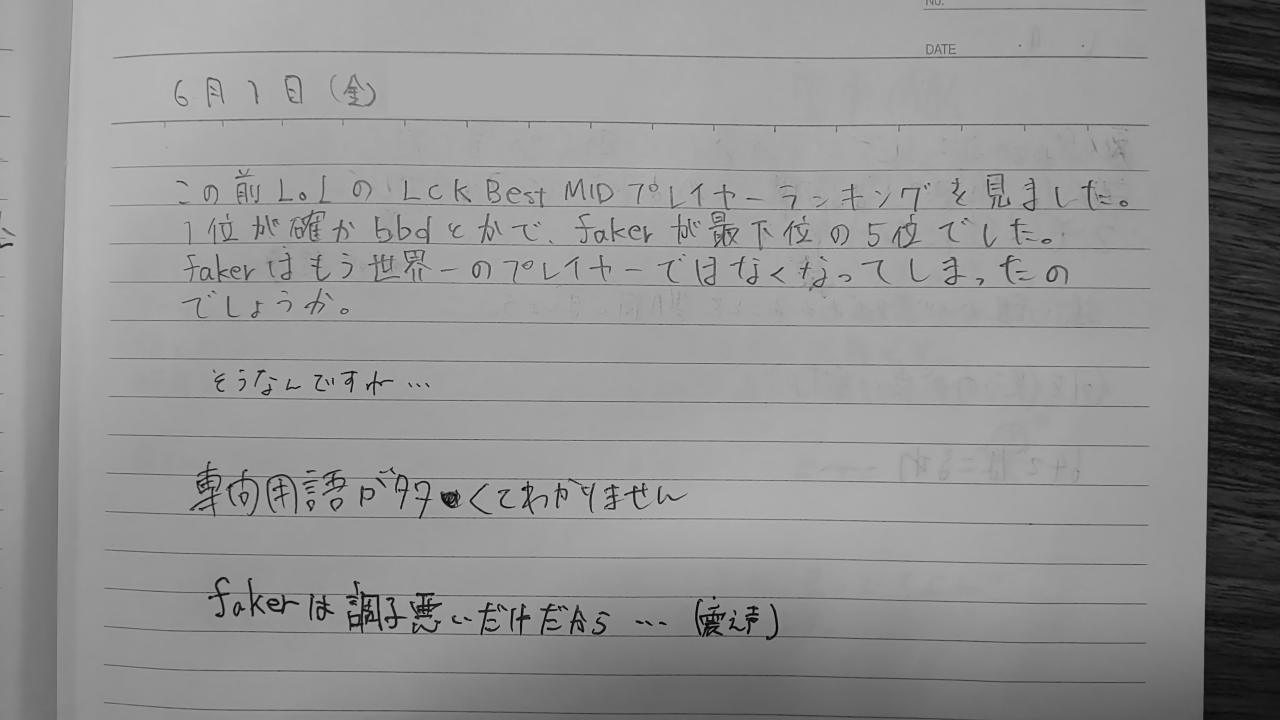 NO.
DATE
6月1日(金)
この前LoLのLCK Best MIDプレイヤーランキングを見ました。
1位が確かbbdとかで、fakerが最下位の5位でした。
fakerはもう世界一のプレイヤーではなくなってしまったの
でしょうか。
そうなんですね…
専向用語が多くてわかりません
fakerは調子悪いだけだから…(震え声)